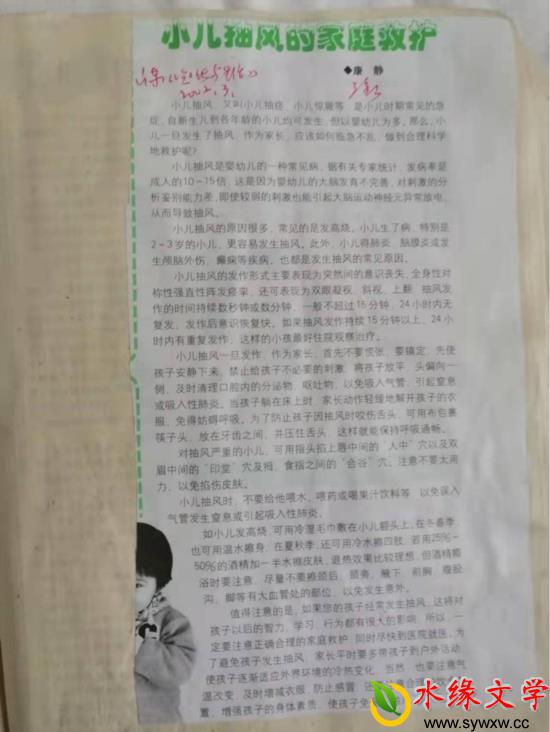 小儿抽风的家庭救护
◆康 静
2002.3.
小儿抽风，又叫小儿抽痉、小儿惊厥等，是小儿时期常见的急
症，自新生儿到各年龄的小儿均可发生，但以婴幼儿为多。那么，小
儿一旦发生了抽风，作为家长，应该如何临急不乱，做到合理科学
地救护呢？
小儿抽风是婴幼儿的一种常见病，据有关专家统计，发病率是
成人的10-15倍，这是因为婴幼儿的大脑发育不完善，对刺激的分
析鉴别能力差，即使较弱的刺激也能引起大脑运动神经元异常放电，
从而导致抽风。
小儿抽风的原因很多，常见的是发高烧。小儿生了病，特别是
2-3岁的小儿，更容易发生抽风。此外，小儿得肺炎、脑膜炎或发
生颅脑外伤、癫痫等疾病，也都是发生抽风的常见原因。
小儿抽风的发作形式主要表现为突然间的意识丧失，全身性对
称性强直性阵发痉挛，还可表现为双眼凝视、斜视、上翻，抽风发
作的时间持续数秒钟或数分钟，一般不超过15分钟，24小时内无
复发，发作后意识恢复快。如果抽风发作持续15分钟以上，24小
时内有重复发作，这样的小孩最好住院观察治疗。
小儿抽风一旦发作，作为家长，首先不要慌张，要镇定，先使
孩子安静下来，禁止给孩子不必要的刺激，将孩子放平，头偏向一
侧，及时清理口腔内的分泌物、呕吐物，以免吸入气管，引起窒息
或吸入性肺炎。当孩子躺在床上时，家长动作轻缓地解开孩子的衣
服，免得妨碍呼吸。为了防止孩子因抽风时咬伤舌头，可用布包裹
筷子头，放在牙齿之间，并压住舌头，这样就能保持呼吸通畅。
对抽风严重的小儿，可用指头掐上唇中间的“人中”穴以及双
眉中间的“印堂”穴及拇、食指之间的“合谷”穴，注意不要太用
力，以免掐伤皮肤。
小儿抽风时，不要给他喂水、喂药或喝果汁饮料等，以免误入
气管发生窒息或引起吸入性肺炎。
如小儿发高烧，可用冷湿毛巾敷在小儿额头上，在冬春季，
也可用温水擦身，在夏秋季，还可用冷水擦四肢，若用25%-
50%的酒精加一半水擦皮肤，退热效果比较理想，但酒精擦
浴时要注意，尽量不要擦颈后、颈旁、腋下、前胸、腹股
沟、脚等有大血管处的部位，以免发生意外。
值得注意的是，如果您的孩子经常发生抽风，这将对
孩子以后的智力、学习、行为都有很大的影响，所以，一
定要注意正确合理的家庭救护，同时尽快到医院就医。为
了避免孩子发生抽风，家长平时要多带孩子到户外活动，
使孩子逐渐适应外界环境的冷热变化，当然，也要注意气
温改变，及时增减衣服，防止感冒
置，增强孩子的身体素质，使孩子免
水缘文学
www.sywxw.cc